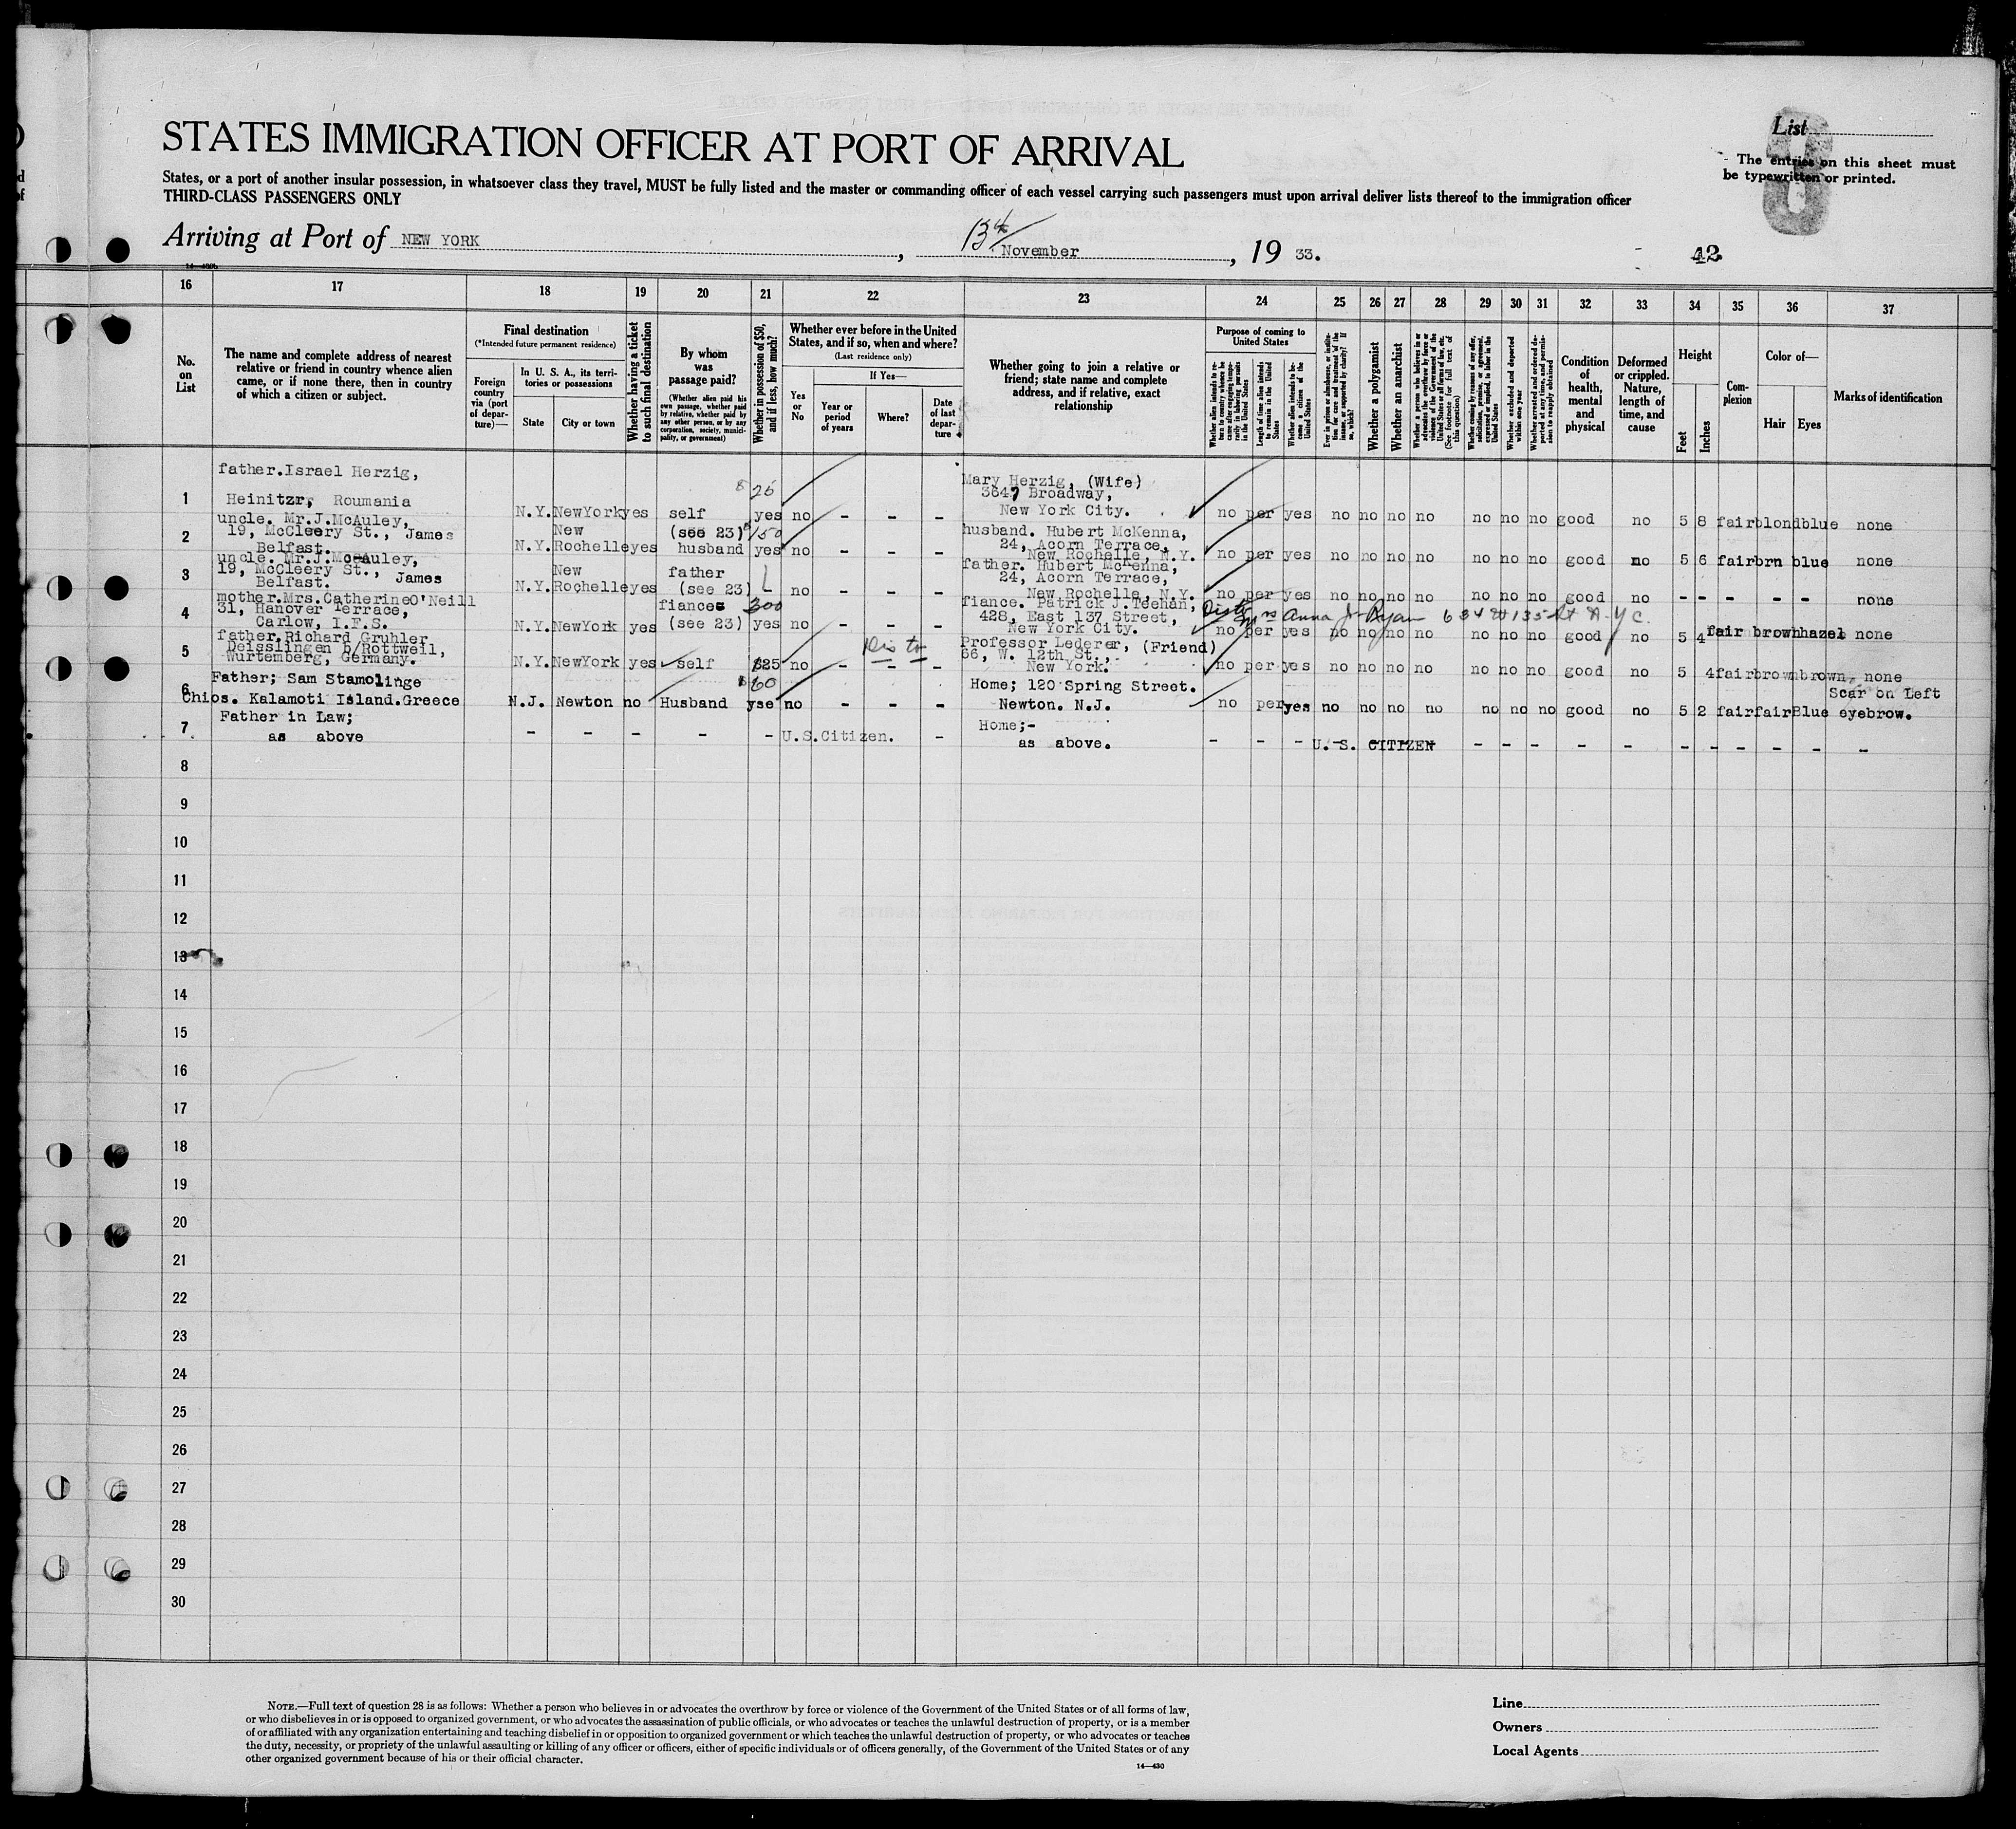 STATES IMMIGRATION OFFICER AT PORT OF ARRIVAL
List
3
The entries on this sheet must
be typewritten or printed.
States, or a port of another insular possession, in whatsoever class they travel, MUST be fully listed and the master or commanding officer of each vessel carrying such passengers must upon arrival deliver lists thereof to the immigration officer
THIRD-CLASS PASSENGERS ONLY
Arriving at Port of NEW YORK, 13th November, 19 33.
42
16 17 18 19 20 21 22 23 24 25 26 27 28 29 30 31 32 33 34 35 36 37
No. on List
The name and complete address of nearest
relative or friend in country whence alien
came, or if none there, then in country
of which a citizen or subject.
Final destination
(*Intended future permanent residence)
Foreign country via (port of departure)—
In U. S. A., its territories or possessions
State
City or town
Whether having a ticket to such final destination
By whom was passage paid?
(Whether alien paid his own passage, whether paid by relative, whether paid by any other person, or by any corporation, society, municipality, or government)
Whether in possession of $50, and if less, how much?
Whether ever before in the United States, and if so, when and where?
(Last residence only)
Yes or No
If Yes—
Year or period of years
Where?
Date of last departure
Whether going to join a relative or
friend; state name and complete
address, and if relative, exact
relationship
Purpose of coming to United States
Whether alien intends to return to country whence he came after engaging temporarily in laboring pursuits in the United States
Length of time alien intends to remain in the United States
Whether alien intends to become a citizen of the United States
Ever in prison or almshouse, or institution for care and treatment of the insane, or supported by charity? If so, which?
Whether a polygamist
Whether an anarchist
Whether a person who believes in or advocates the overthrow by force or violence of the Government of the United States or all forms of law, etc. (See footnote for full text of this question)
Whether coming by reason of any offer, solicitation, promise, or agreement, expressed or implied, to labor in the United States
Whether excluded and deported within one year
Whether arrested and ordered deported at any time, and permission to reapply obtained
Condition of health, mental and physical
Deformed or crippled. Nature, length of time, and cause
Height
Feet
Inches
Complexion
Color of—
Hair
Eyes
Marks of identification
1
father.Israel Herzig,
Heinitzr, Roumania
N.Y. NewYork yes self 25 yes no - - -
Mary Herzig, (Wife)
3647 Broadway,
New York City.
no per yes no no no no no no no good no 5 8 fair blond blue none
2
uncle. Mr.J.McAuley,
19, McCleery St., James
Belfast.
N.Y. New Rochelle yes (see 23) husband 150 yes no - - -
husband. Hubert McKenna,
24, Acorn Terrace,
New Rochelle, N.Y.
no per yes no no no no no no no good no 5 6 fair brn blue none
3
uncle. Mr.J.McAuley,
19, McCleery St., James
Belfast.
N.Y. New Rochelle yes father (see 23) no - - -
father. Hubert McKenna,
24, Acorn Terrace,
New Rochelle, N.Y.
no per yes no no no no no no no good no - - - - - none
4
mother.Mrs.CatherineO'Neill
31, Hanover Terrace,
Carlow, I.F.S.
N.Y. NewYork yes fiances (see 23) 300 yes no - - -
fiance. Patrick J.Teehan,
428, East 137 Street,
New York City.
Disto Mrs Anna J Ryan 634 W 135 St N.Y.C.
no per yes no no no no no no no good no 5 4 fair brown hazel none
5
father.Richard Gruhler
Deisslingen b/Rottweil,
Wurtemberg, Germany.
N.Y. NewYork yes self $25 no - - -
Dis to
Professor Lederer, (Friend)
66, W. 12th St.,
New York.
no per yes no no no no no no no good no 5 4 fair brown brown none
6
Father; Sam Stamolinge
Chios. Kalamoti Island.Greece
N.J. Newton no Husband $60 yse no - - -
Home; 120 Spring Street.
Newton. N.J.
no per yes no no no no no no no good no 5 2 fair fair Blue Scar on Left eyebrow.
7
Father in Law;
as above
- - - - - U.S.Citizen. -
Home;-
as above.
- - - U. S. CITIZEN - - - - - - - - - - -
8
9
10
11
12
13
14
15
16
17
18
19
20
21
22
23
24
25
26
27
28
29
30
NOTE.—Full text of question 28 is as follows: Whether a person who believes in or advocates the overthrow by force or violence of the Government of the United States or of all forms of law,
or who disbelieves in or is opposed to organized government, or who advocates the assassination of public officials, or who advocates or teaches the unlawful destruction of property, or is a member
of or affiliated with any organization entertaining and teaching disbelief in or opposition to organized government or which teaches the unlawful destruction of property, or who advocates or teaches
the duty, necessity, or propriety of the unlawful assaulting or killing of any officer or officers, either of specific individuals or of officers generally, of the Government of the United States or of any
other organized government because of his or their official character.
14—430
Line
Owners
Local Agents